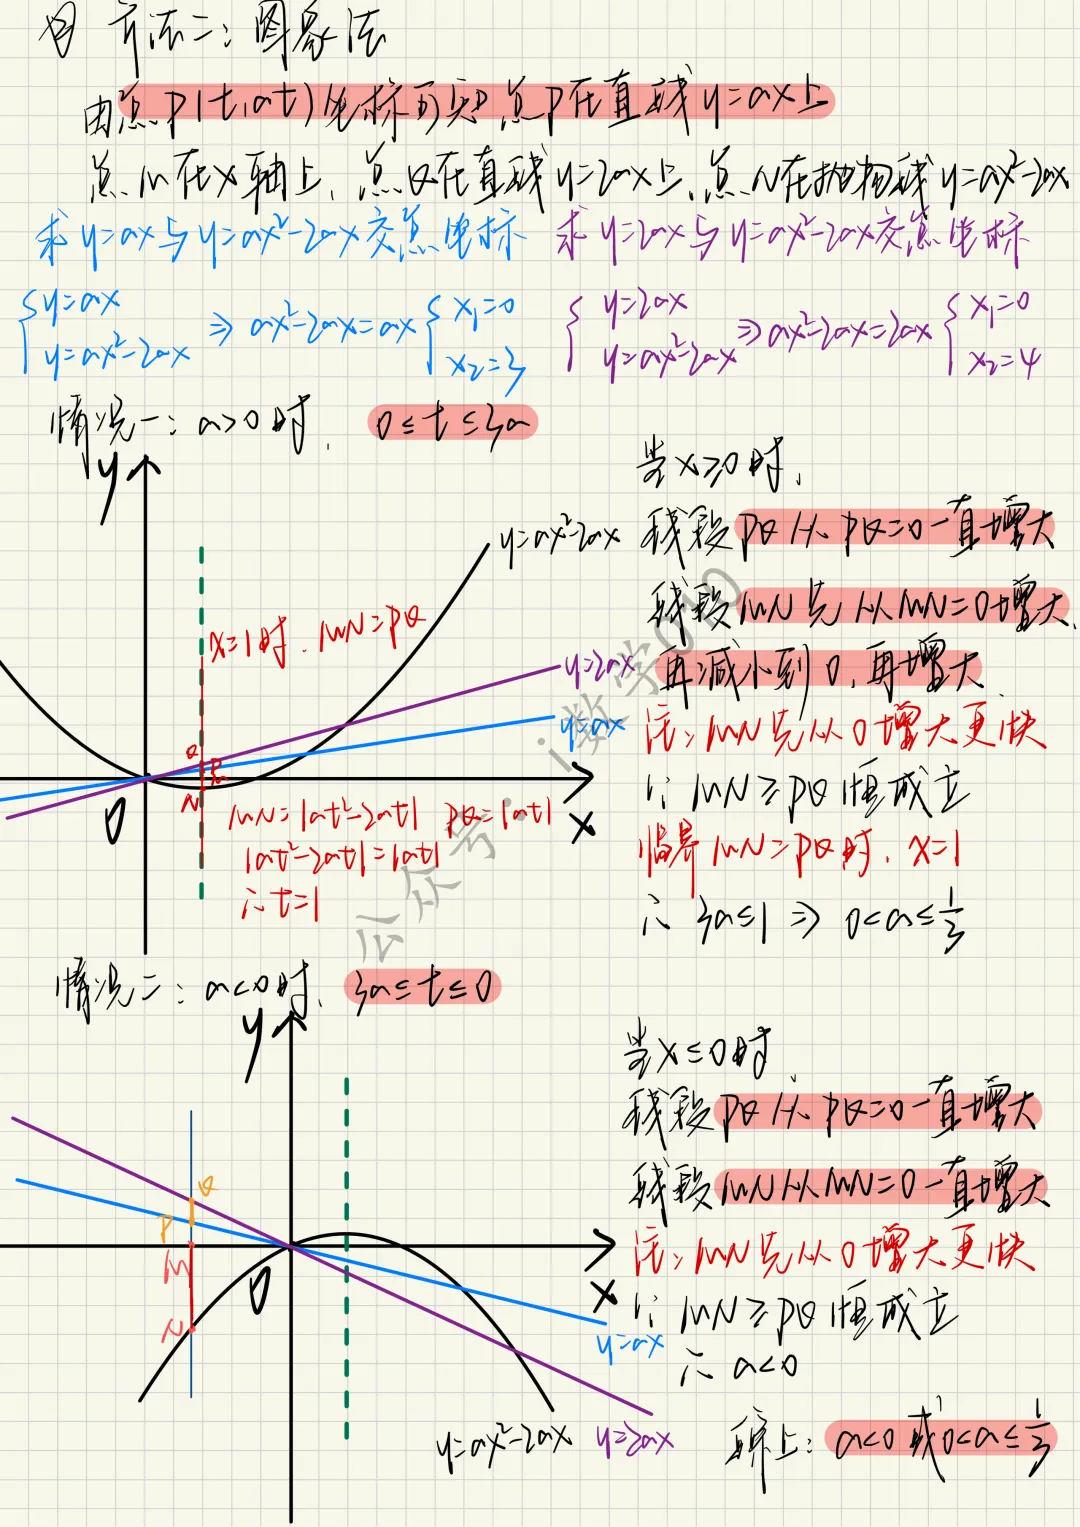 方法二：图象法
由点P(t,at)坐标可知点P在直线y=ax上
点M在x轴上，点Q在直线y=2ax上，点N在抛物线y=ax²-2ax
求y=ax与y=ax²-2ax交点坐标
{y=ax
y=ax²-2ax ⇒ ax²-2ax=ax {x₁=0
x₂=3
求y=2ax与y=ax²-2ax交点坐标
{y=2ax
y=ax²-2ax ⇒ ax²-2ax=2ax {x₁=0
x₂=4
情况一：a>0时， 0≤t≤3a
y
y=ax²-2ax
x=1时，MN=PQ
y=2ax
y=ax
Q
P
M
N
0
x
MN=|at²-2at| PQ=|at|
|at²-2at|=|at|
∴t=1
当x≥0时，
线段PQ从PQ=0一直增大
线段MN先从MN=0增大，
再减小到0，再增大
注：MN先从0增大更快
∵MN≥PQ恒成立
临界MN=PQ时，x=1
∴3a≤1 ⇒ 0<a≤1/3
公众号·i数学010
情况二：a<0时， 3a≤t≤0
y
Q
P
M
N
0
x
y=ax
y=ax²-2ax
y=2ax
当x≤0时，
线段PQ从PQ=0一直增大
线段MN从MN=0一直增大
注：MN先从0增大更快
∵MN≥PQ恒成立
∴a<0
综上：a<0或0<a≤1/3